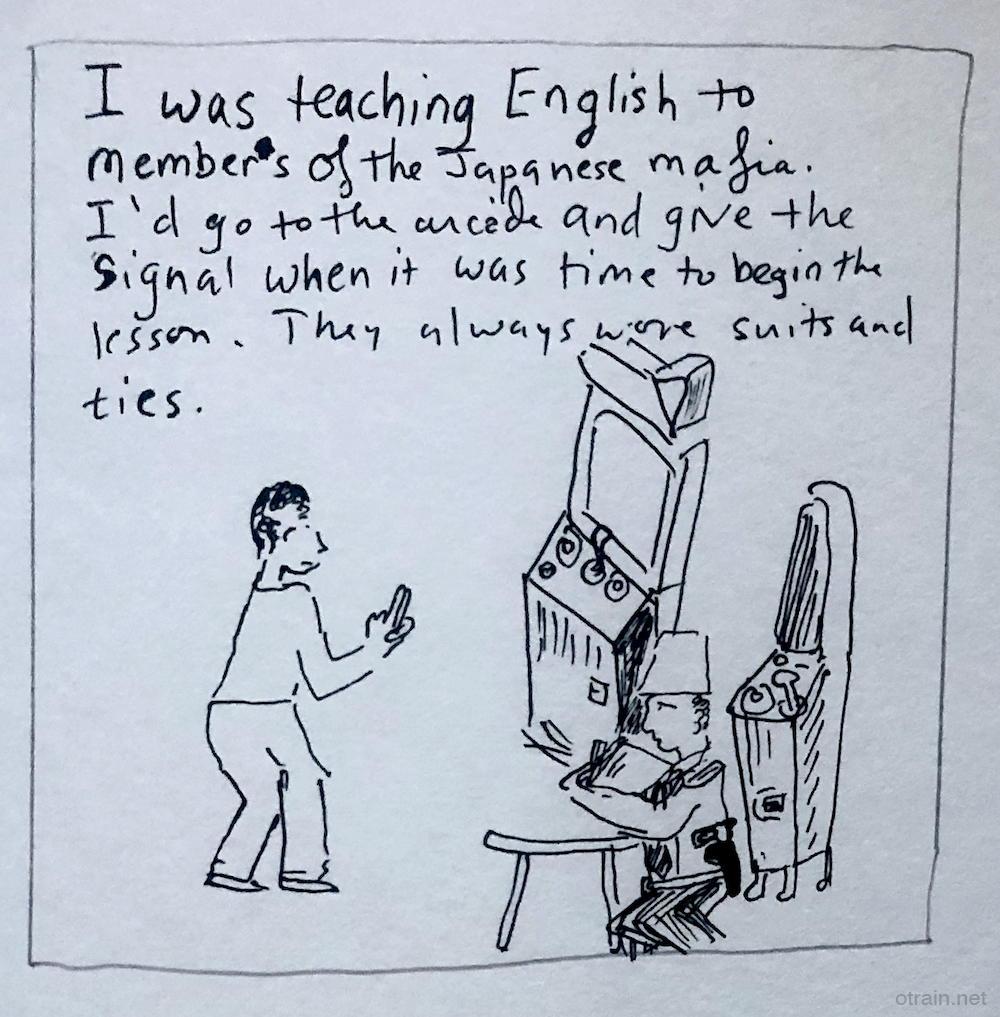 I was teaching English to
members of the Japanese mafia.
I'd go to the arcade and give the
signal when it was time to begin the
lesson. They always wore suits and
ties.
otrain.net